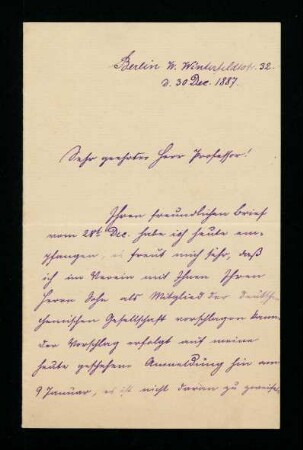 Berlin W. Winterfeldtstr. 32
d. 30 Dec. 1887.
Sehr geehrter Herr Professor!
Ihren freundlichen Brief
vom 28t Dec. habe ich heute em-
pfangen, es freut mich sehr, daß
ich im Verein mit Ihnen Ihren
Herrn Sohn als Mitglied der deutsch-
chemischen Gesellschaft vorschlagen kann
der Vorschlag erfolgt auf meine
heute geschehene Anmeldung hin am
9 Januar, es ist nicht daran zu zweifel